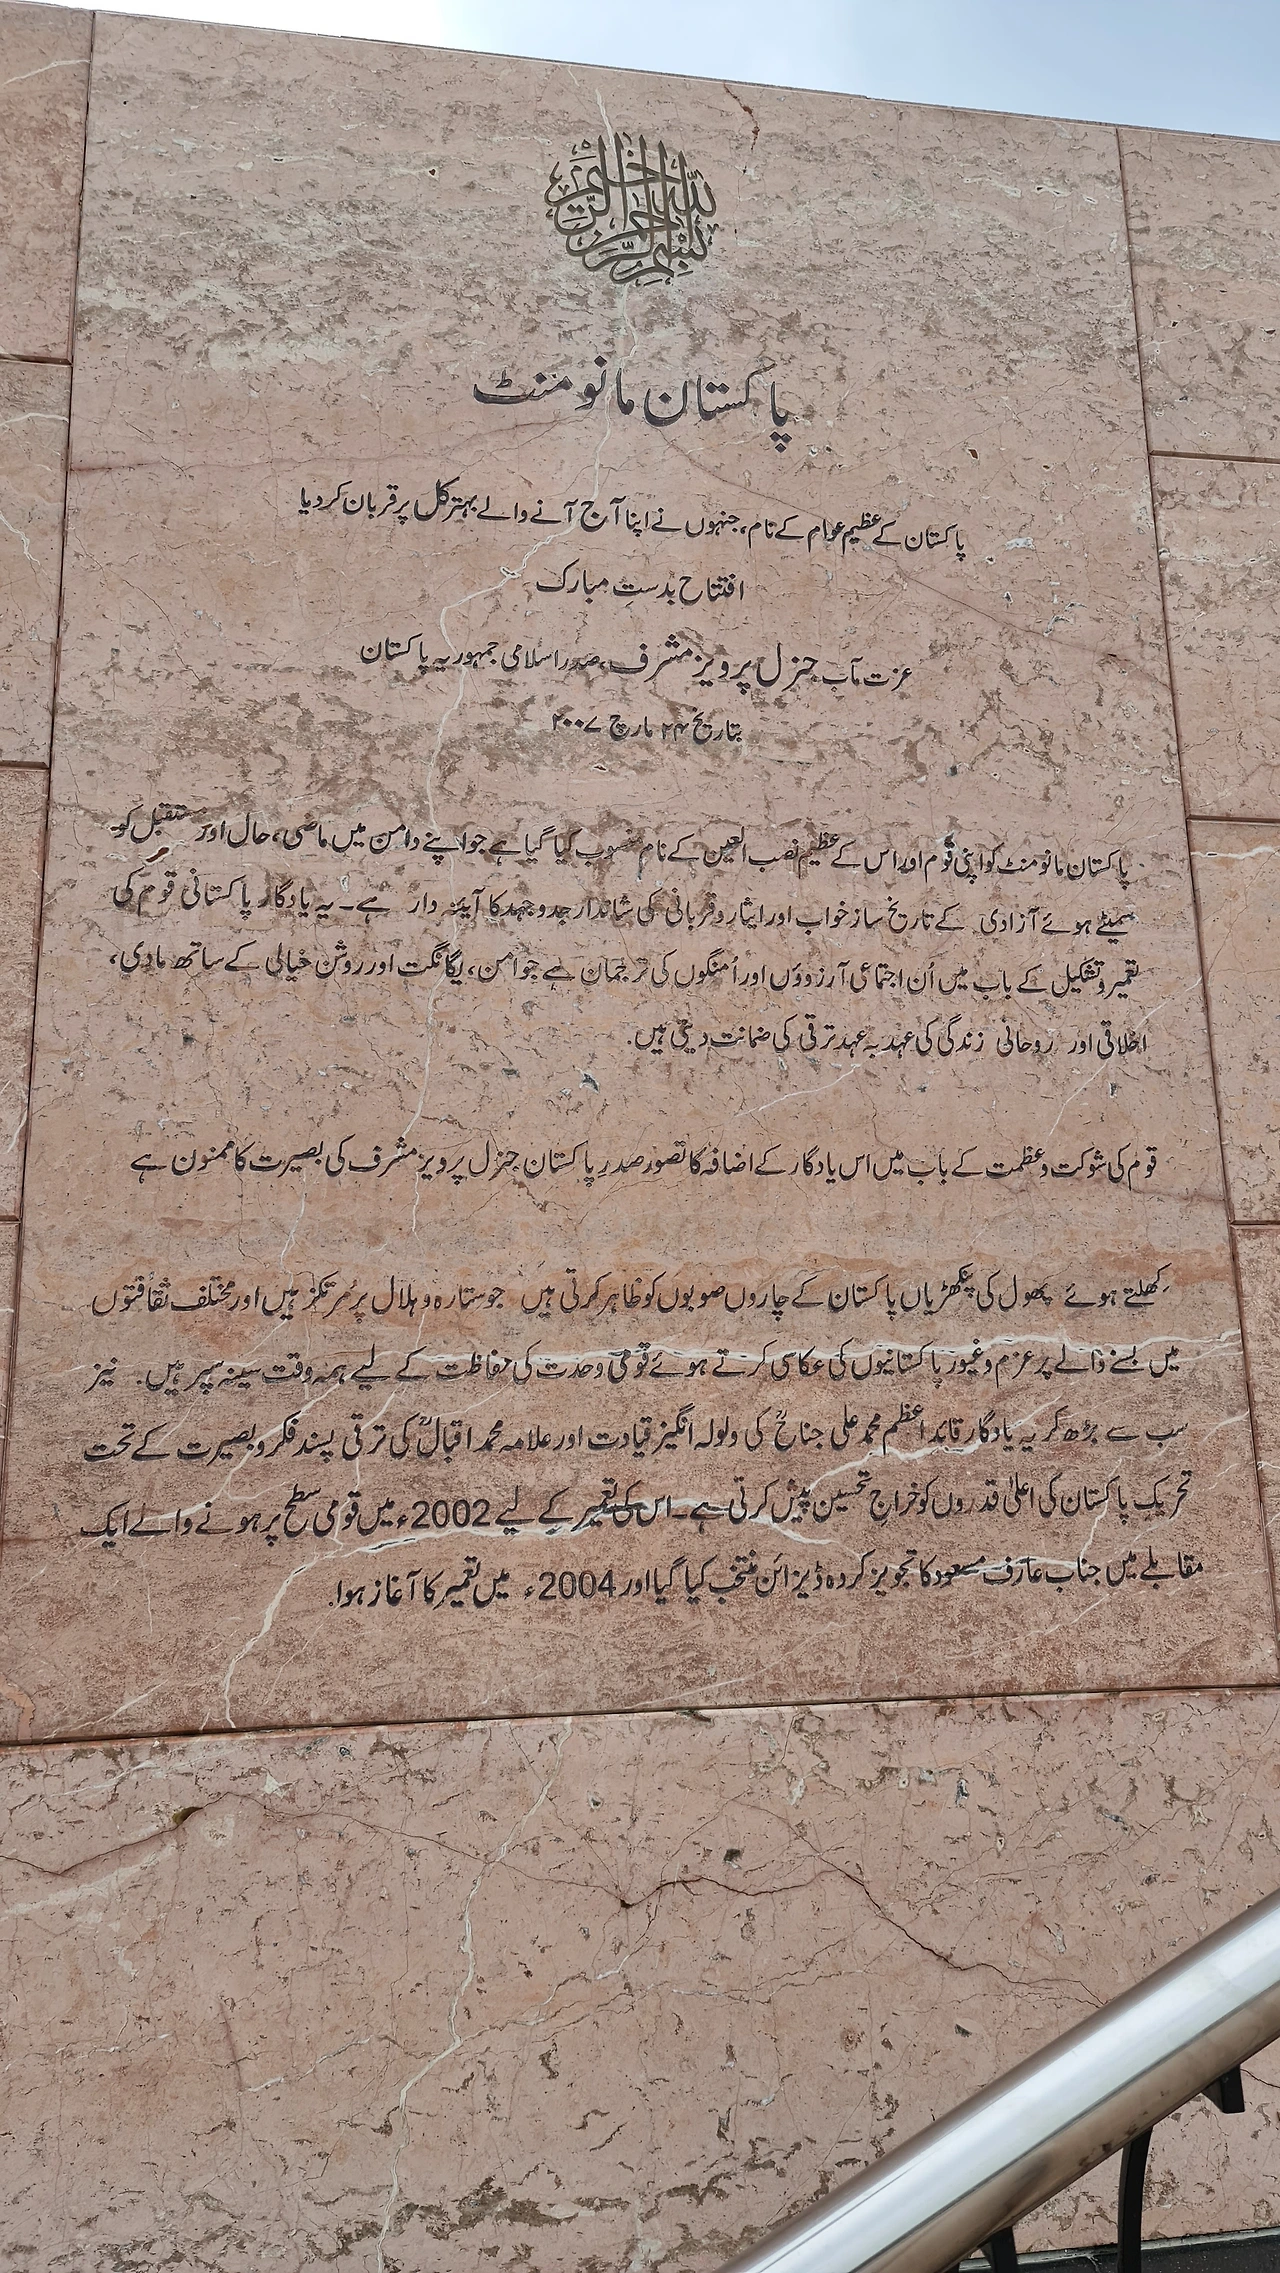 بسم الله الرحمن الرحيم
پاکستان مانومنٹ
پاکستان کے عظیم عوام کے نام، جنہوں نے اپنا آج آنے والے بہتر کل پر قربان کر دیا
افتتاح بدستِ مبارک
عزت مآب جنرل پرویز مشرف، صدر اسلامی جمہوریہ پاکستان
بتاریخ ۲۴ مارچ ۲۰۰۷
پاکستان مانومنٹ کو اپنی قوم اور اس کے عظیم نصب العین کے نام منسوب کیا گیا ہے جو اپنے دامن میں ماضی، حال اور مستقبل کو
سمیٹے ہوئے آزادی کے تاریخ ساز خواب اور ایثار و قربانی کی شاندار جدوجہد کا آئینہ دار ہے۔ یہ یادگار پاکستانی قوم کی
تعمیر و تشکیل کے باب میں اُن اجتماعی آرزوؤں اور اُمنگوں کی ترجمان ہے جو امن، یگانگت اور روشن خیالی کے ساتھ مادی،
اخلاقی اور روحانی زندگی کی عہد بہ عہد ترقی کی ضمانت دیتی ہیں.
قوم کی شوکت و عظمت کے باب میں اس یادگار کے اضافہ کا تصور صدرِ پاکستان جنرل پرویز مشرف کی بصیرت کا ممنون ہے
کِھلتے ہوئے پھول کی پنکھڑیاں پاکستان کے چاروں صوبوں کو ظاہر کرتی ہیں جو ستارہ و ہلال پر مُرتکز ہیں اور مختلف ثقافتوں
میں بسنے والے پرعزم و غیور پاکستانیوں کی عکاسی کرتے ہوئے قومی وحدت کی حفاظت کے لیے ہمہ وقت سینہ سپر ہیں. نیز
سب سے بڑھ کر یہ یادگار قائد اعظم محمد علی جناحؒ کی ولولہ انگیز قیادت اور علامہ محمد اقبالؒ کی ترقی پسند فکر و بصیرت کے تحت
تحریکِ پاکستان کی اعلیٰ قدروں کو خراجِ تحسین پیش کرتی ہے۔ اس کی تعمیر کے لیے 2002ء میں قومی سطح پر ہونے والے ایک
مقابلے میں جناب عارف مسعود کا تجویز کردہ ڈیزائن منتخب کیا گیا اور 2004ء میں تعمیر کا آغاز ہوا.